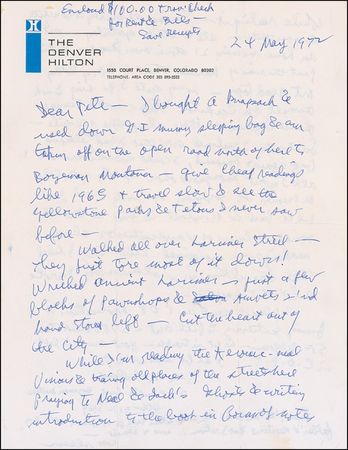 Enclosed $100.00 + Check
for Rent & Bills —
Save Receipts
24 May 1972
THE
DENVER
HILTON
1550 COURT PLACE, DENVER, COLORADO 80202
TELEPHONE: AREA CODE 303 893-3333
Dear Pete — I bought a Knapsack &
used down G.I mummy sleeping bag & am
taking off on the open road north of here to
Bozeman Montana — give cheap readings
like 1965 & travel slow & see the
Yellowstone Parks & Tetons I never saw
before —
Walked all over Larimer Street —
they just tore most of it down!
Wrecked ancient Larimer — just a few
blocks of Pawnshops & 2'nd
hand stores left — Cut the heart out of
the city —
While I'm reading the
Visions & old places of the streets here
praying to Neal & Jack's Ghosts & writing
introduction to the book in of notes